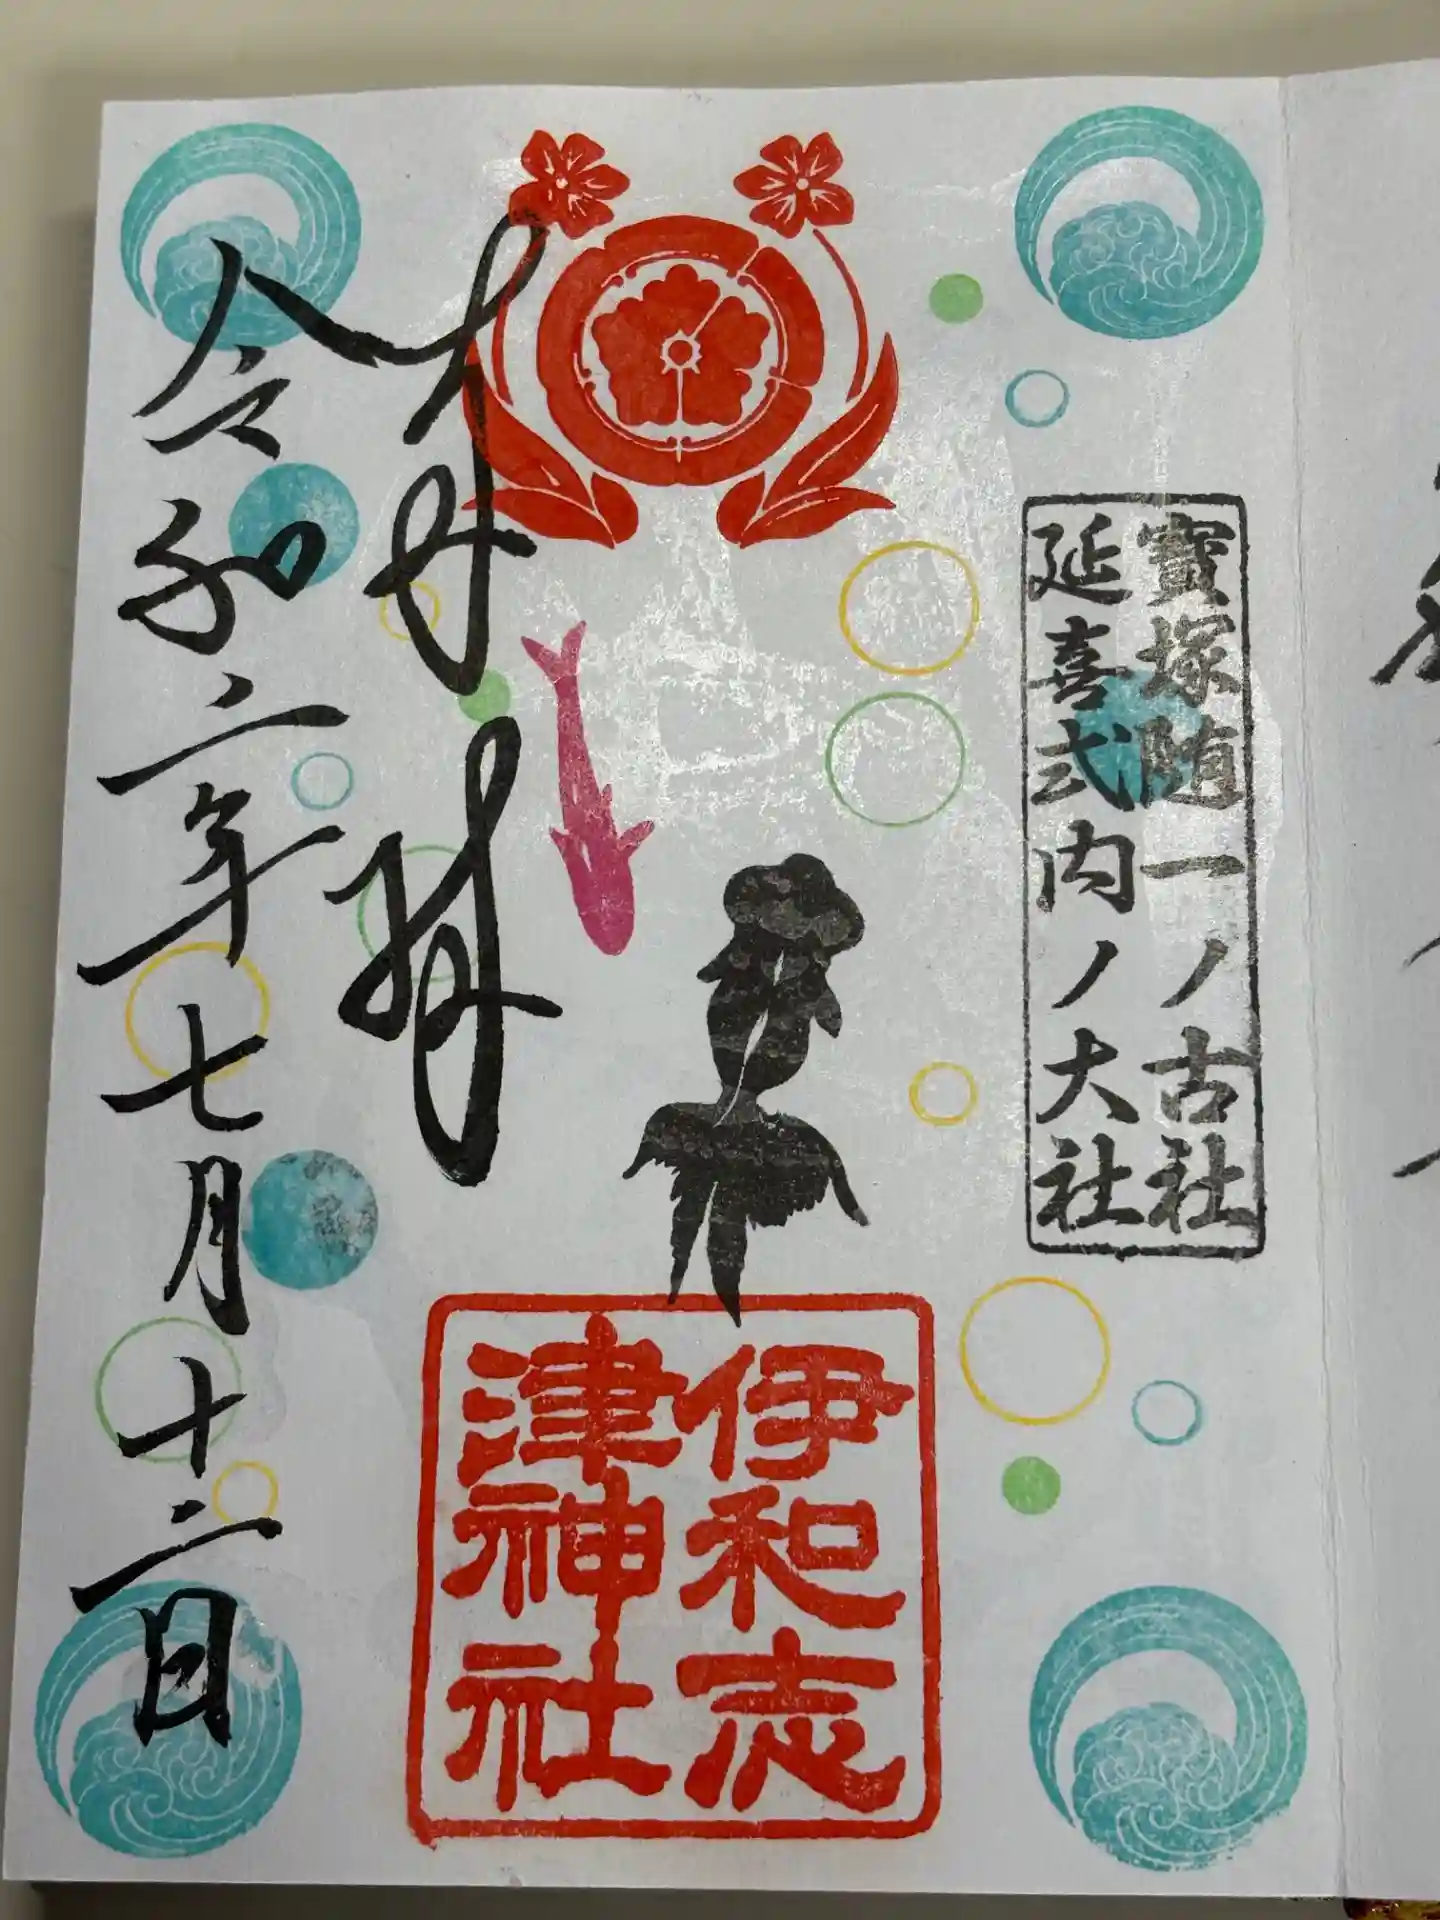 寶塚随一ノ古社
延喜式内ノ大社
伊和志
津神社
奉拝
令和二年七月十二日